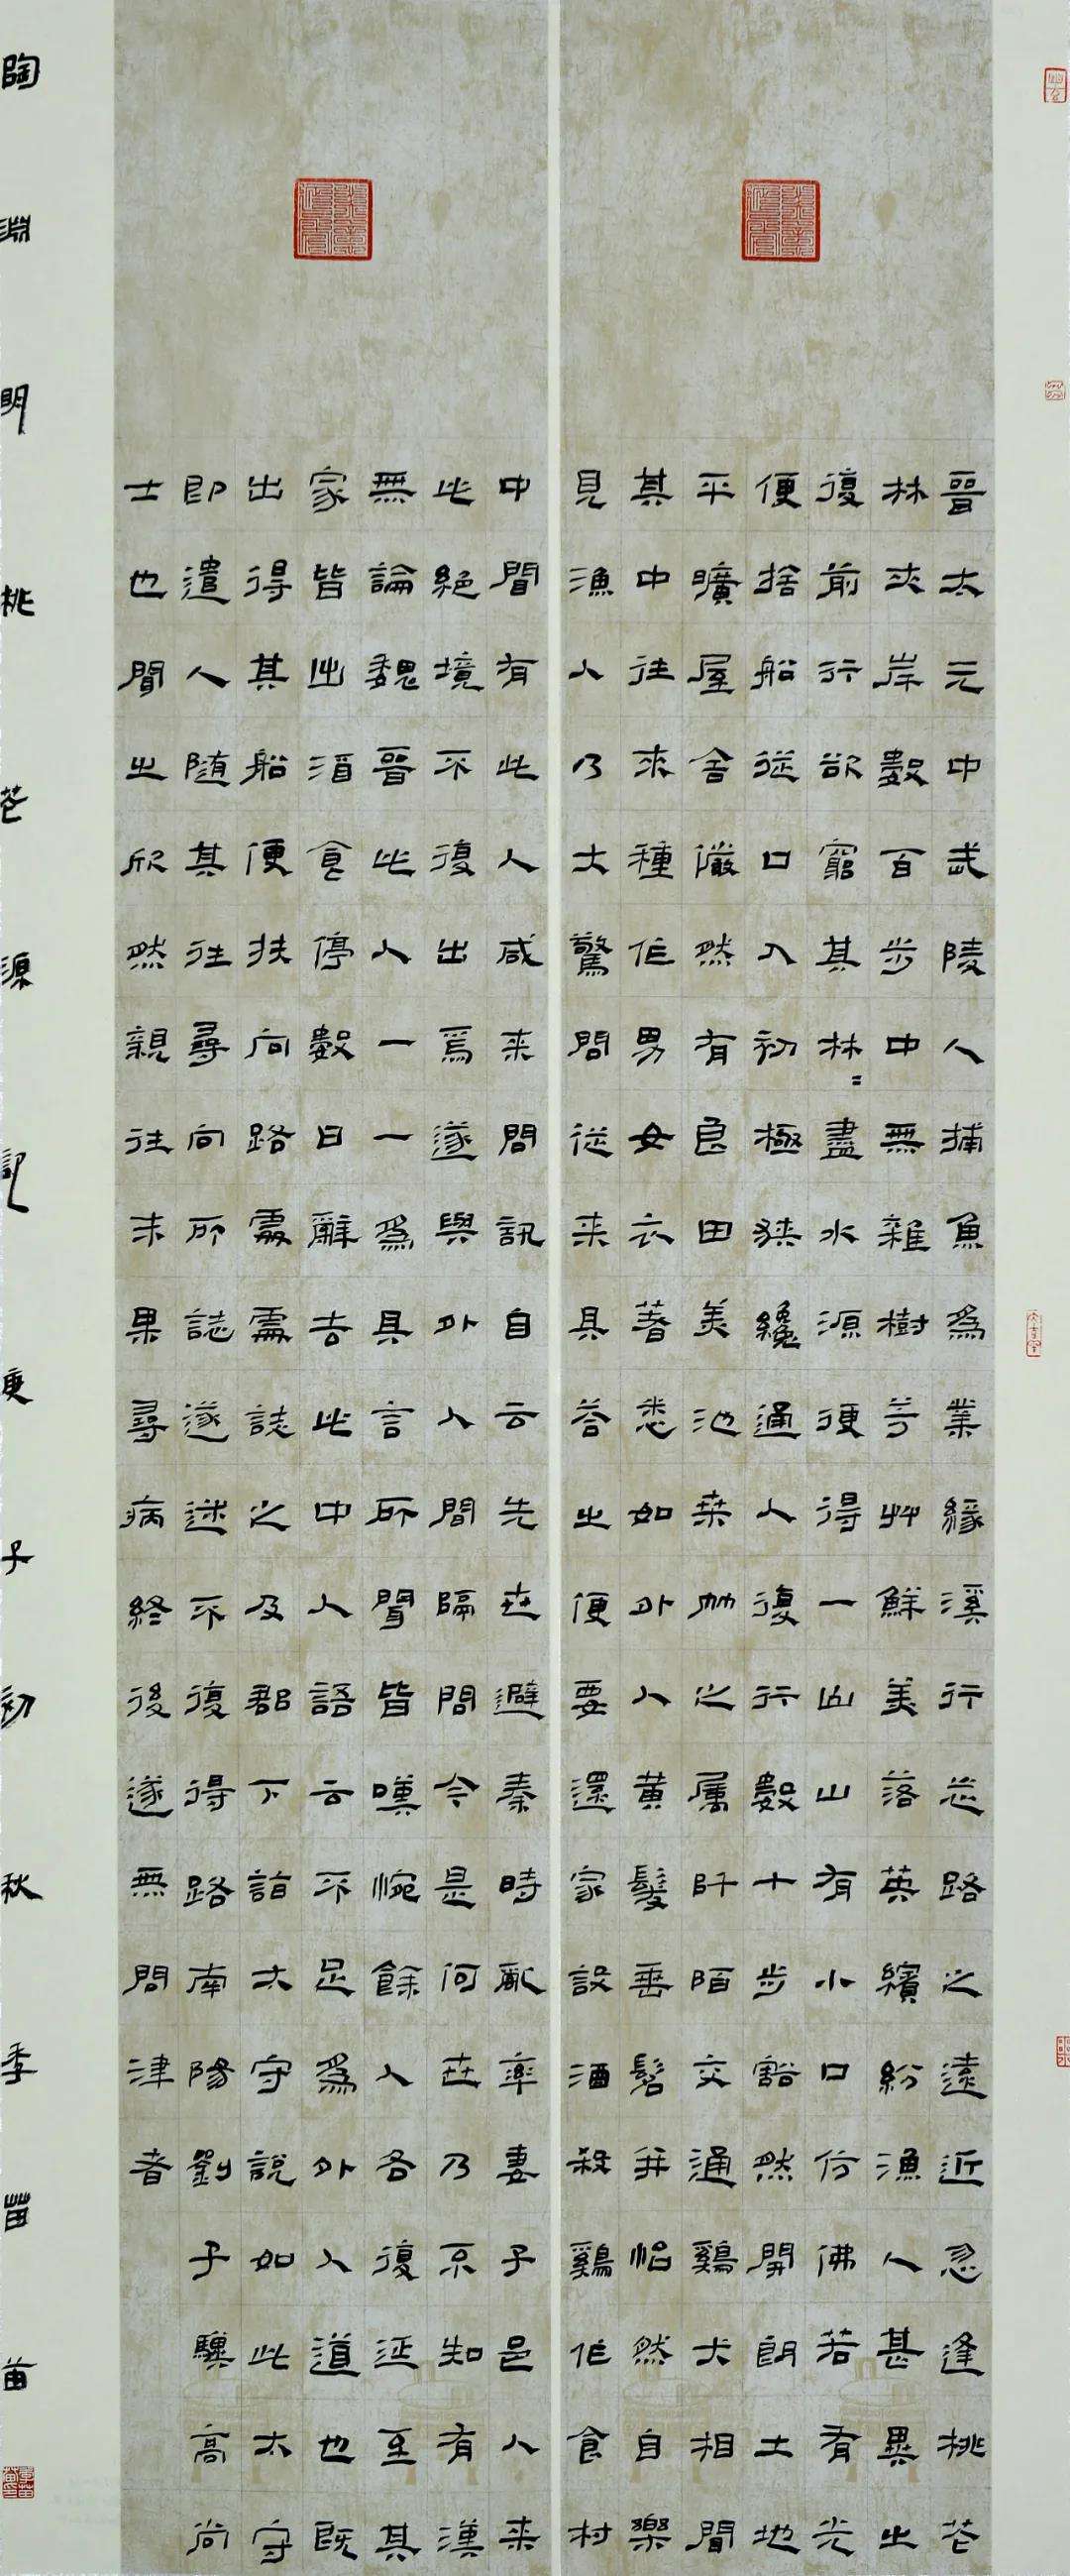 晉太元中武陵人捕魚為業緣溪行忘路之遠近忽逢桃花
林夾岸數百步中無雜樹芳艸鮮美落英繽紛漁人甚異之
復前行欲窮其林〻盡水源便得一山山有小口仿佛若有光
便捨船從口入初極狹纔通人復行數十步豁然開朗土地
平曠屋舍儼然有良田美池桑竹之属阡陌交通鷄犬相聞
其中往來種作男女衣著悉如外人黄髮垂髫并怡然自樂
見漁人乃大驚問從来具荅之便要還家設酒殺鷄作食村
中聞有此人咸来問訊自云先世避秦時亂率妻子邑人来
此絕境不復出焉遂與外人間隔問今是何世乃不知有漢
無論魏晉此人一一為具言所聞皆嘆惋餘人各復延至其
家皆出酒食停數日辭去此中人語云不足為外人道也既
出得其船便扶向路處處誌之及郡下詣太守說如此太守
即遣人随其往尋向所誌遂迷不復得路南陽劉子驥高尚
士也聞之欣然親往未果尋病終後遂無問津者
陶淵明桃花源記庚子初秋季苗